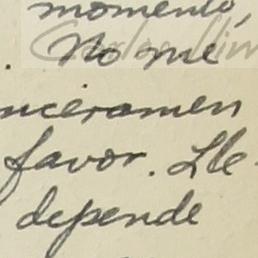 momento,
. No me
nceramen
favor. Lle
depende